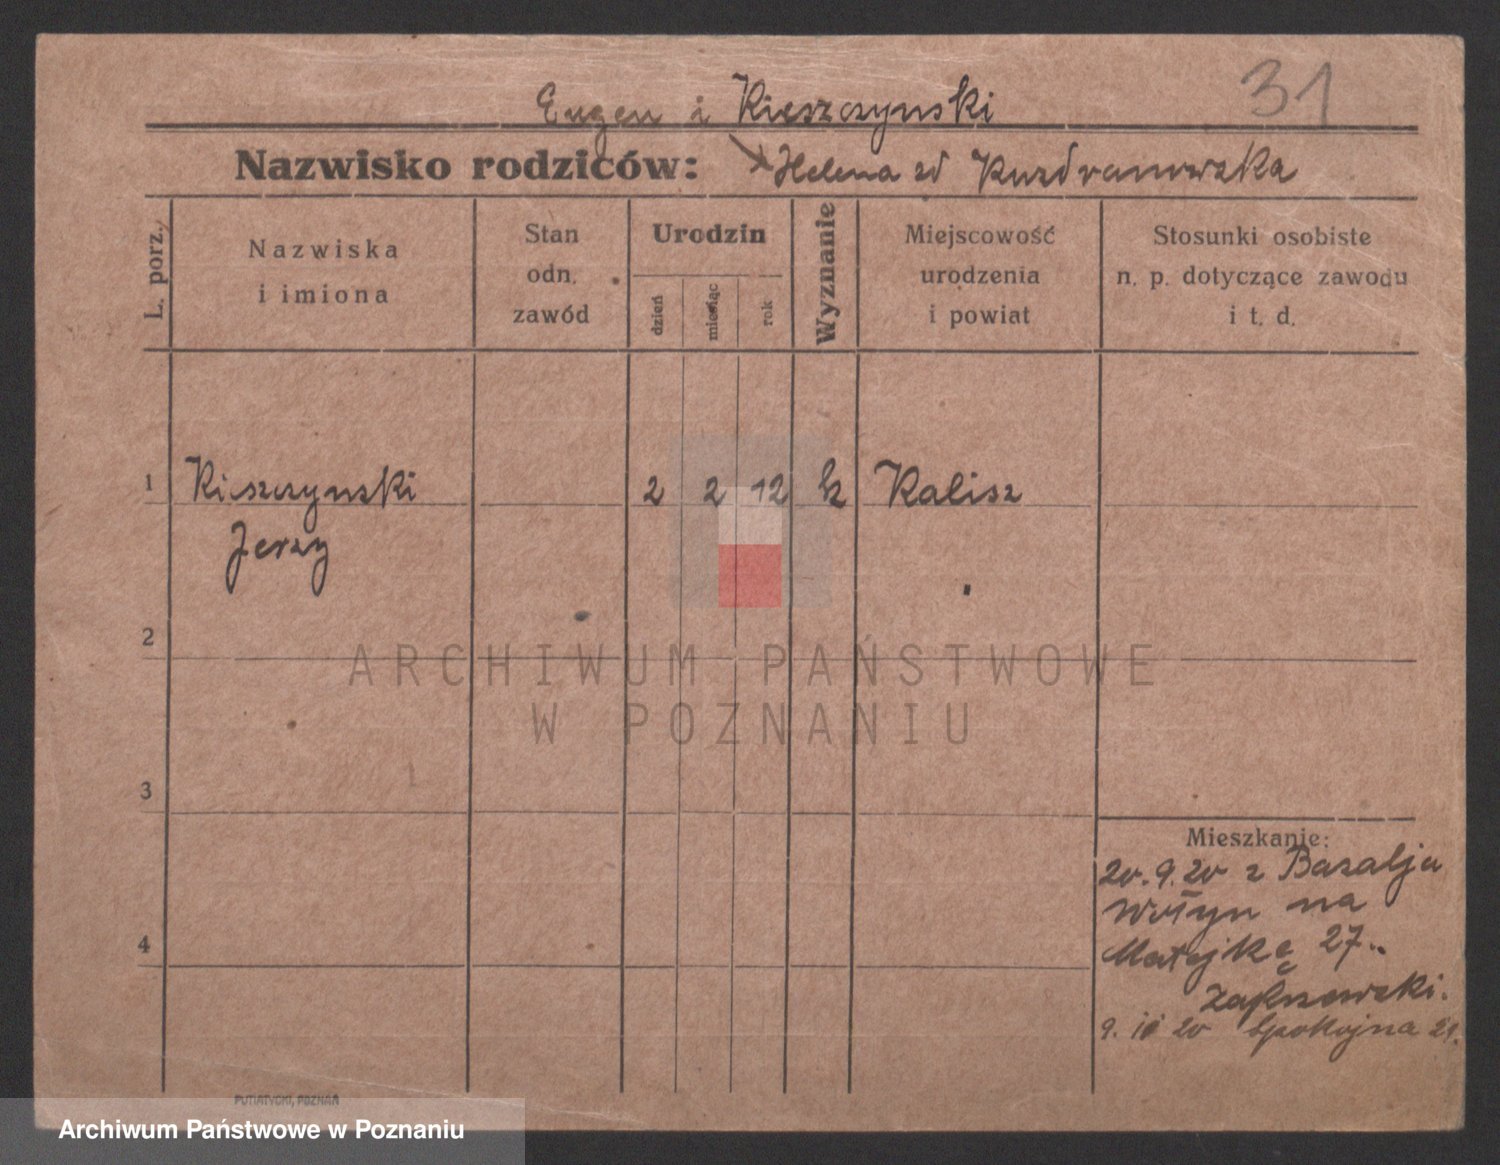 31
Eugen i Kieszczynski
Nazwisko rodziców: Helena zd
L. porz.
Nazwiska
i imiona
Stan
odn.
zawód
Urodzin
dzień
miesiąc
rok
Wyznanie
Miejscowość
urodzenia
i powiat
Stosunki osobiste
n. p. dotyczące zawodu
i t. d.
1 Kieszczynski 2 2 12 k Kalisz
Jerzy
2
ARCHIWUM PAŃSTWOWE
W POZNANIU
3
Mieszkanie:
20.9.20 z Bazalja
Wołyn na
4
Matejkę 27..
Zakrzewski.
9. 20 Spokojna 21.
PUTIATYCKI, POZNAŃ
Archiwum Państwowe w Poznaniu